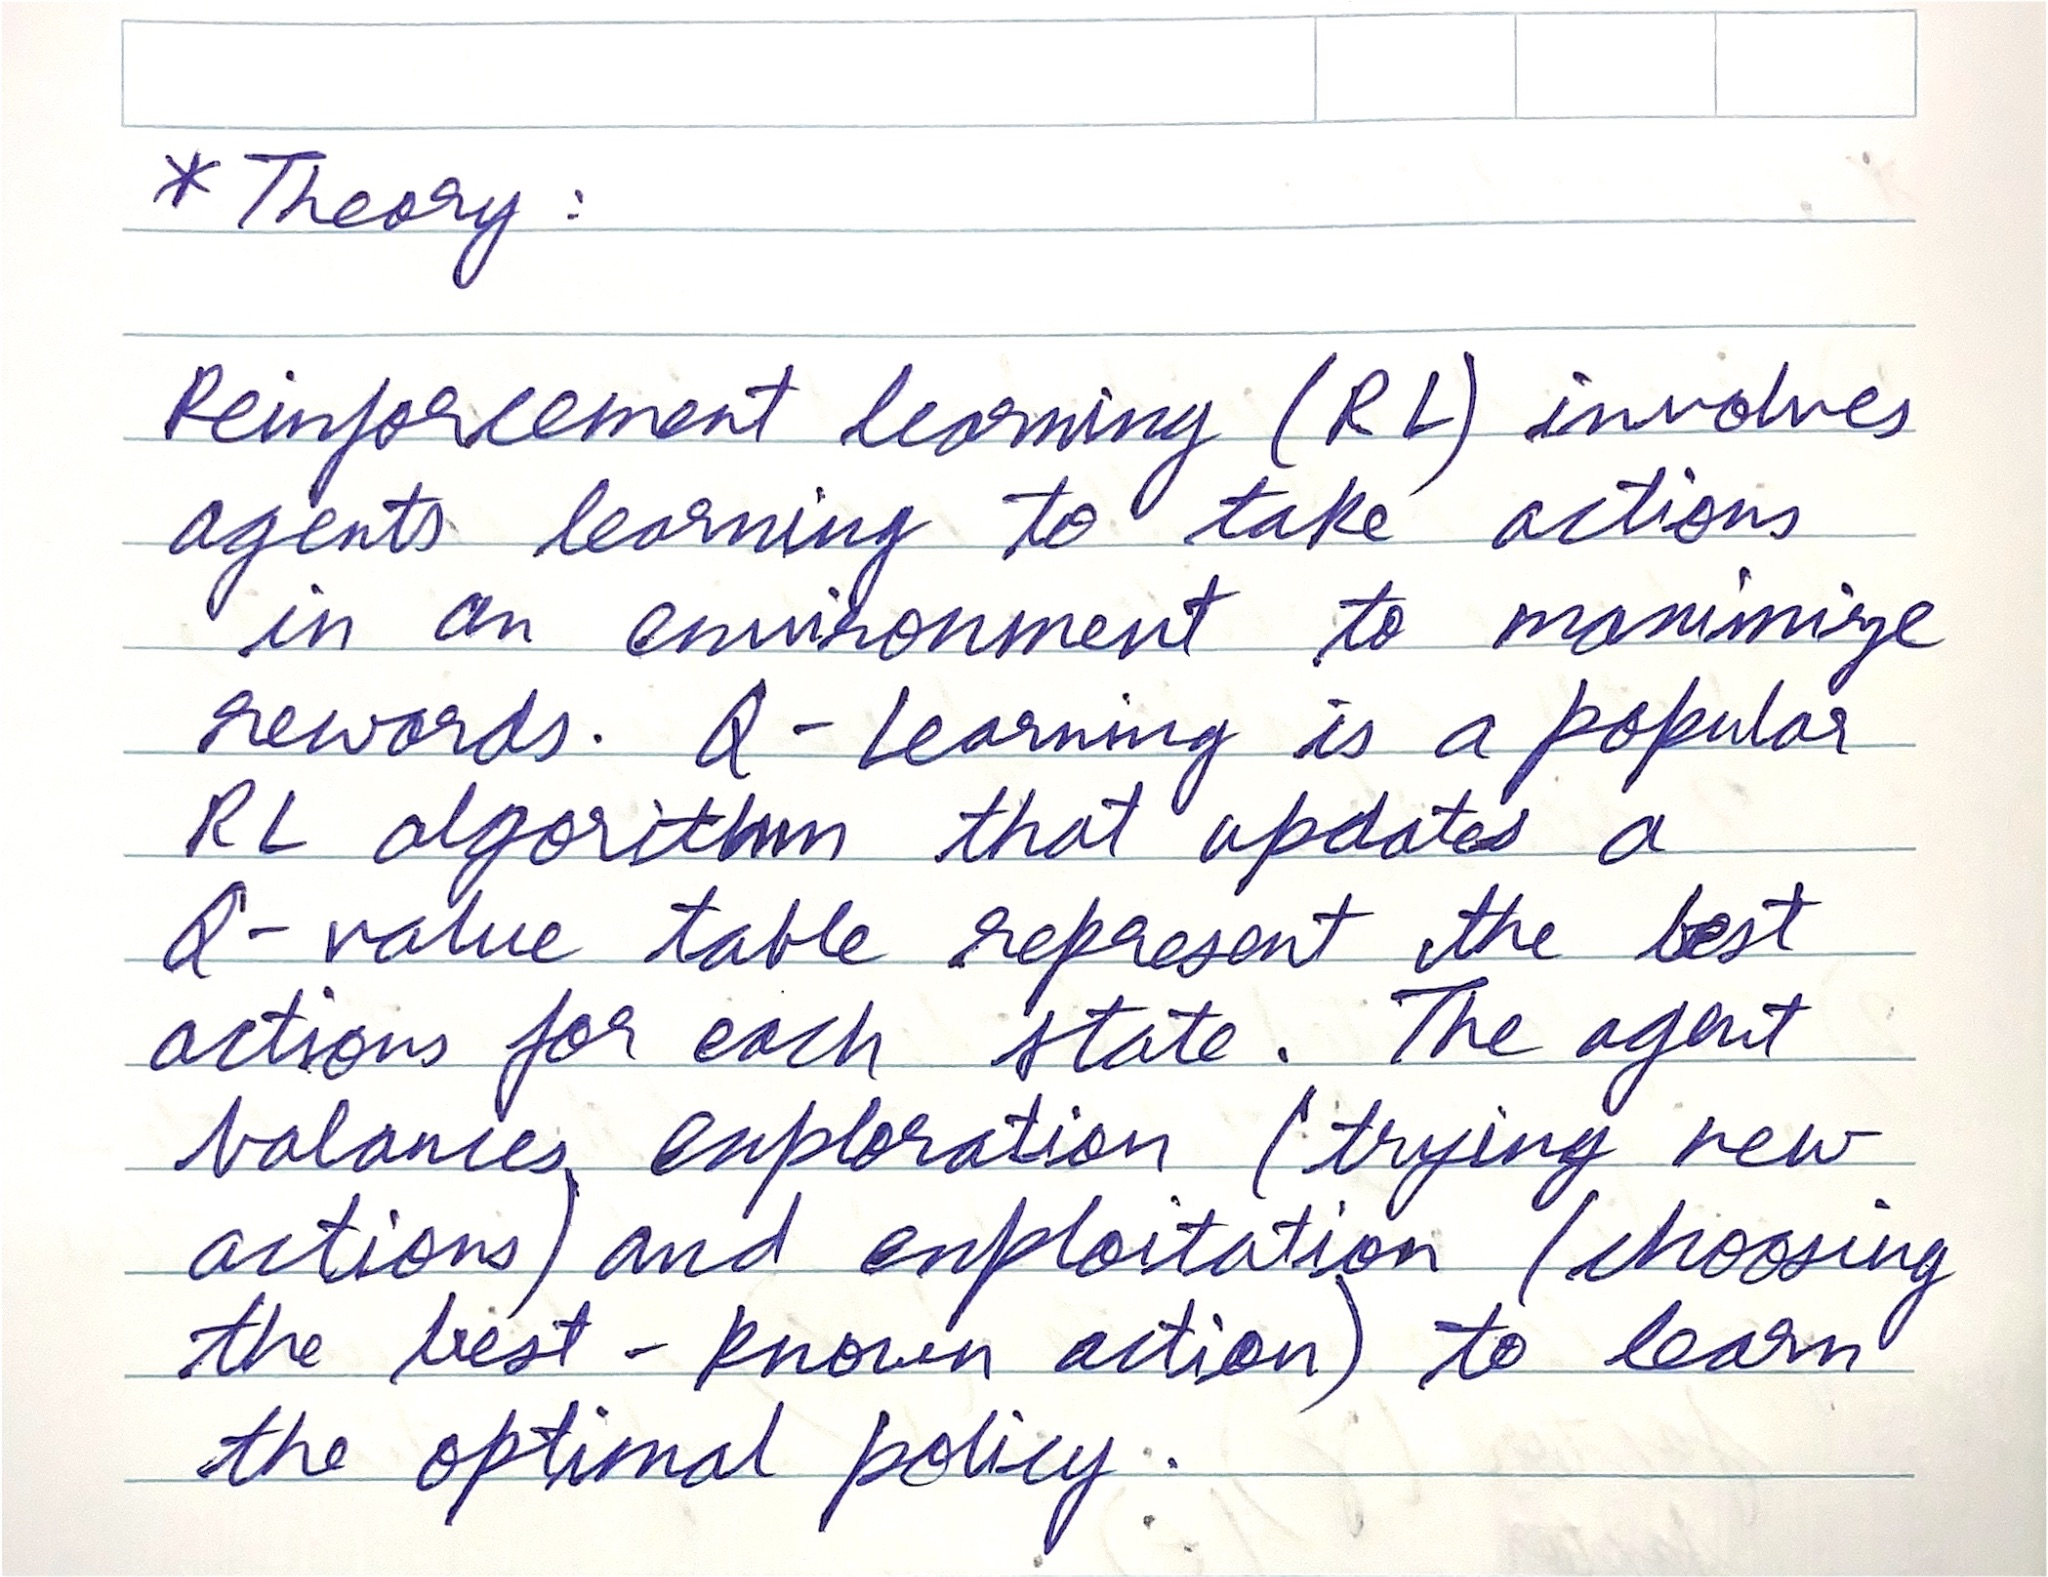 * Theory :
Reinforcement learning (RL) involves
agents learning to take actions
in an environment to maximize
rewards. Q - Learning is a popular
RL algorithm that updates a
Q - value table represent the best
actions for each state. The agent
balances exploration (trying new
actions) and exploitation (choosing
the best - known action) to learn
the optimal policy.